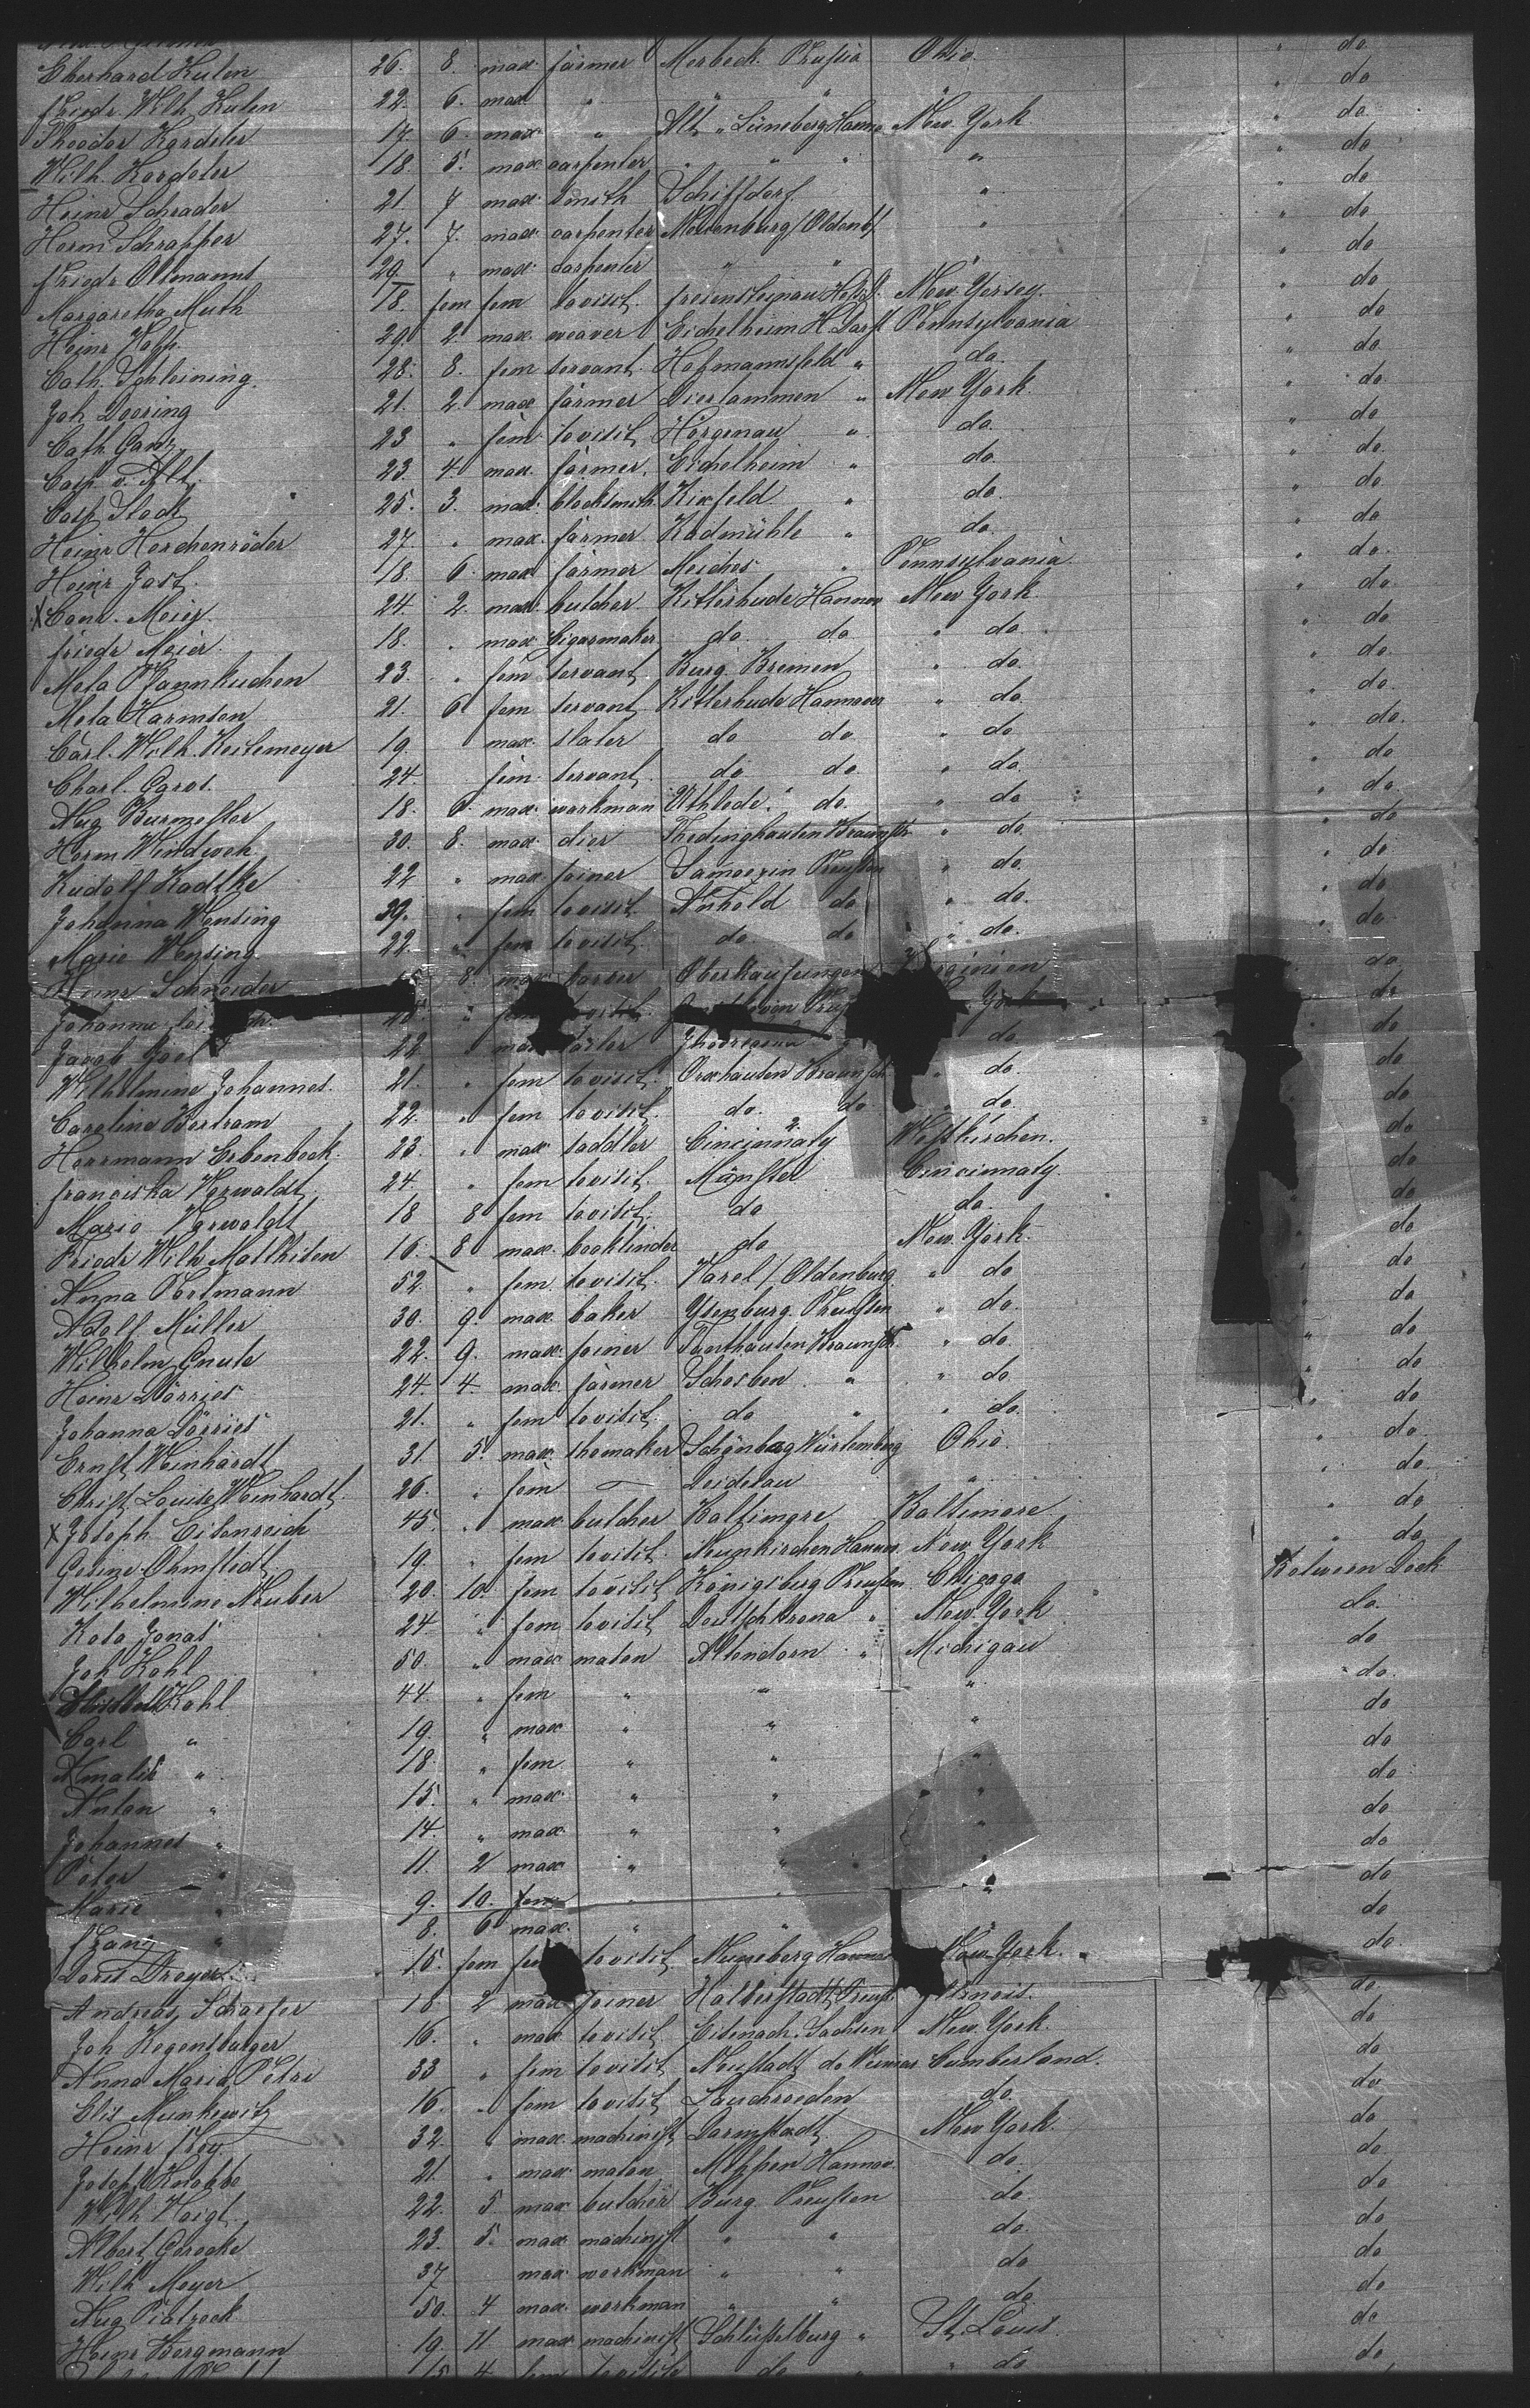 Eberhard Kulen 26. 8. max. farmer Merbeck Prussia Ohio " do
Friedr. Wilh. Kulen 22. 6. max " " " " " do
Theodor Kordeter 17. 6. max. " Alt Lüneberg Hanno New York " do
Wilh. Kordeter 18. 5. max. carpenter " " " " do
Heinr Schrader 21. 7 max. smith Schiffdorf " " do
Herm. Schrapper 27. 7. max. carpenter Neuenburg / Oldenb/ " " do
Friedr Oltmanns 29. " max. carpenter " " " do
Margaretha Muth 18. fem fem to visit. Freiensteinau New Yersey. " do
Heinr 29. 2. max. weaver Eichelheim H. Darst Pennsylvania " do
Cath. Schleining. 28. 8. fem servant. Hofmannsfeld " do. " do
Joh Doering 21. 2. max farmer Dirlammen " New York " do.
Cath. Ganz 23 " fem. to visit Hörgenau " do. " do
23. 4. max. farmer. Eichelheim " do. " do
Stock 25. 3. max. blocksmith. Kixfeld " do. " do
Heinr Horchenröder 27. " max. farmer. Kadmühle " do. " do
Heinr Jost. 18. 6. max farmer Meiches " Pennsylvania " do.
X Conr. Meier. 24. 2. max. butcher Kitterhude Hannov New York. " do
Friedr Meier. 18. " max. Cigarmaker do. do " do " do
Meta Pfannkuchen 23. " fem servant. Burg. Bremen " do. " do
Meta Harmsen 21. 6 fem servant Kitterhude Hannover " do " do.
Carl. Wilh. Keitemeyer 19. max. slater do do " do " do.
Charl. Garot. 24. fem. servant. do do. " do. " do
Aug Burmester 18. 6. max. workman Uthlede. do. " do " do
Herm Windwek 30. 8. max. dier Thedinghausen Braunschw " do. " do
Rudolf Radtke 22 " max. joiner Samoczin Preussen " do. " do
Johanna Wensing 29. " fem to visit. Anhold do " do. " do
Marie Wensing 22. " fem to visit. do. do " do. " do
Heinr Schneider 8. max Oberkaufungen Virginien do
Johanne York do
Jacob Joel 22 " max do do
Wilhelmine Johannes. 21. " fem to visit. Orxhausen Braunsch " do. do
Caroline Bertram 22. " fem to visit. do. do " do. do
Herrmann Erbenbeck. 23. " max saddler Cincinnaty Westkirchen. do
Franciska Verwaldt 24. " fem to visit. Münster Cincinnaty do
Marie Verwaldt 18 8 fem to visit. do do. do
Friedr Wilh Matthisen 16. 8 max. bookbinder do New York. do
Anna Portmann 52. " fem. to visit. Varel / Oldenburg " do do
Adolf Müller 30. 9. max. baker Ysenburg. Preussen " do. do
Wilhelm Gnute 22. 9. max. joiner Tanthausen Braunsch. " do. do
Heinr Dörries 24. 4. max. farmer Schorben " " do do
Johanna Dörries 21. " fem to visit. do " " do. do
Ernst Weinhardt 31 5. max. shomaker Schönberg Würtemberg Ohio. do
Christ. Louise Weinhardt. 26. " fem — " do.
X Joseph Eisenreich 45. " max. butcher Baltimore Baltimore. " do
Gesine Ohmstedt 19. " fem to visit. Neunkirchen Hannov. New York " do
Wilhelmine Neuber 20. 10. fem to visit. Königsberg Preussen Chicago Between Deck
Rosa Jonas 24. " fem to visit Deutschkrona " New York do.
Joh Kohl 50. " max mason Altendorn " Michigan do
Kohl 44. " fem " " " do.
Carl " 19. " max " " " do
Amalie " 18. " fem. " " " do
Anton " 15. " max. " " " do
Johannes " 14. " max. " " " do
Peter " 11. 2 max " " " do
Marie " 9. 10. fem " " " do
Franz " 8. 6 max. " " do
Doris Dreyer 15. fem to visit. Nuneberg Hannov New York. do
Andreas Schaefer 18 2 max joiner Halberstadt Preuss Illinois. do
Joh Regensburger 16. " max to visit. Eisenach. Sachsen New York. do
Anna Maria Petri 33 " fem to visit. Neustadt do Weimar Cumberland. do
Elis Munkewitz 16. " fem to visit. Lauchroeden do. do
Heinr Frey. 32. " max machinist Darmstadt. New York. do
Joseph Knabbe 21. " max. mason Meppen Hannov. do. do.
Wilh Voigt 22. 5. max butcher Burg. Preussen do. do
Albert Gerecke 23. 5. max machinist " " do. do
Wilh Meyer 37 max workman " " do do
Aug Piatreck 50. 4 max workman " " do do
Heinr Bergmann 19. 11 max machinist Schlüsselburg " St. Louis. do
15 4 fem to visit do " do do